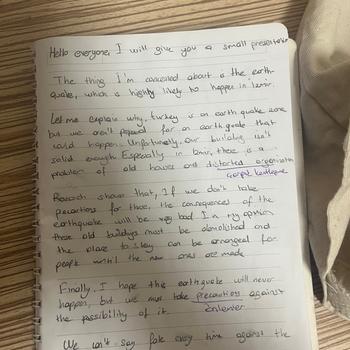 Hello everyone, I will give you a small presentation
The thing I'm concerned about is the earth-
quake, which is highly likely to happen in Izmir.
Let me explain why, turkey is an earth quake zone
but we aren't prepared for an earth quake that
could happen. Unfortunately, our building isn't
solid enough. Especially in Izmir, there is a
problem of old houses and distorted organization
çarpık kentleşme
Research shows that, If we don't take
precautions for those, the consequences of the
earthquake will be very bad. In my opinion
these old buildings must be demolished and
the place to stay can be arranged for
people until the new ones are made.
Finally, I hope this earthquake will never
happen, but we must take precautions against
the possibility of it. önlemler
We can't say fake any time against the